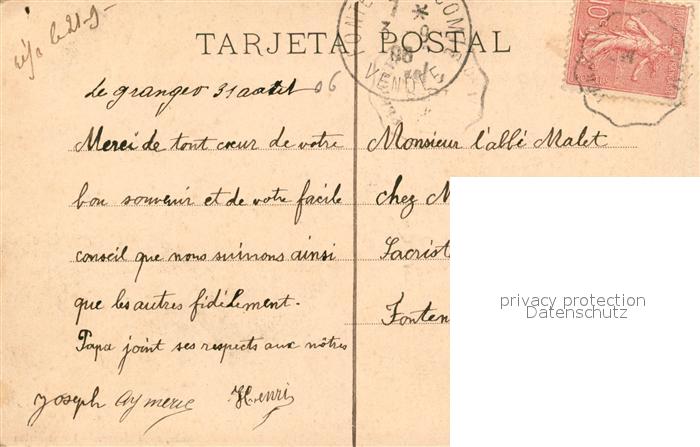 TARJETA POSTAL
31 août 06
Merci de tout cœur de votre
bon souvenir et de votre facile
conseil que nous suivrons ainsi
que les autres fidèlement.
Papa joint ses respects aux nôtres
Joseph Aymeric Henri
Monsieur l'abbé Malet
chez M
Sacrist
Fonten
privacy protection
Datenschutz
VENDÉE
10